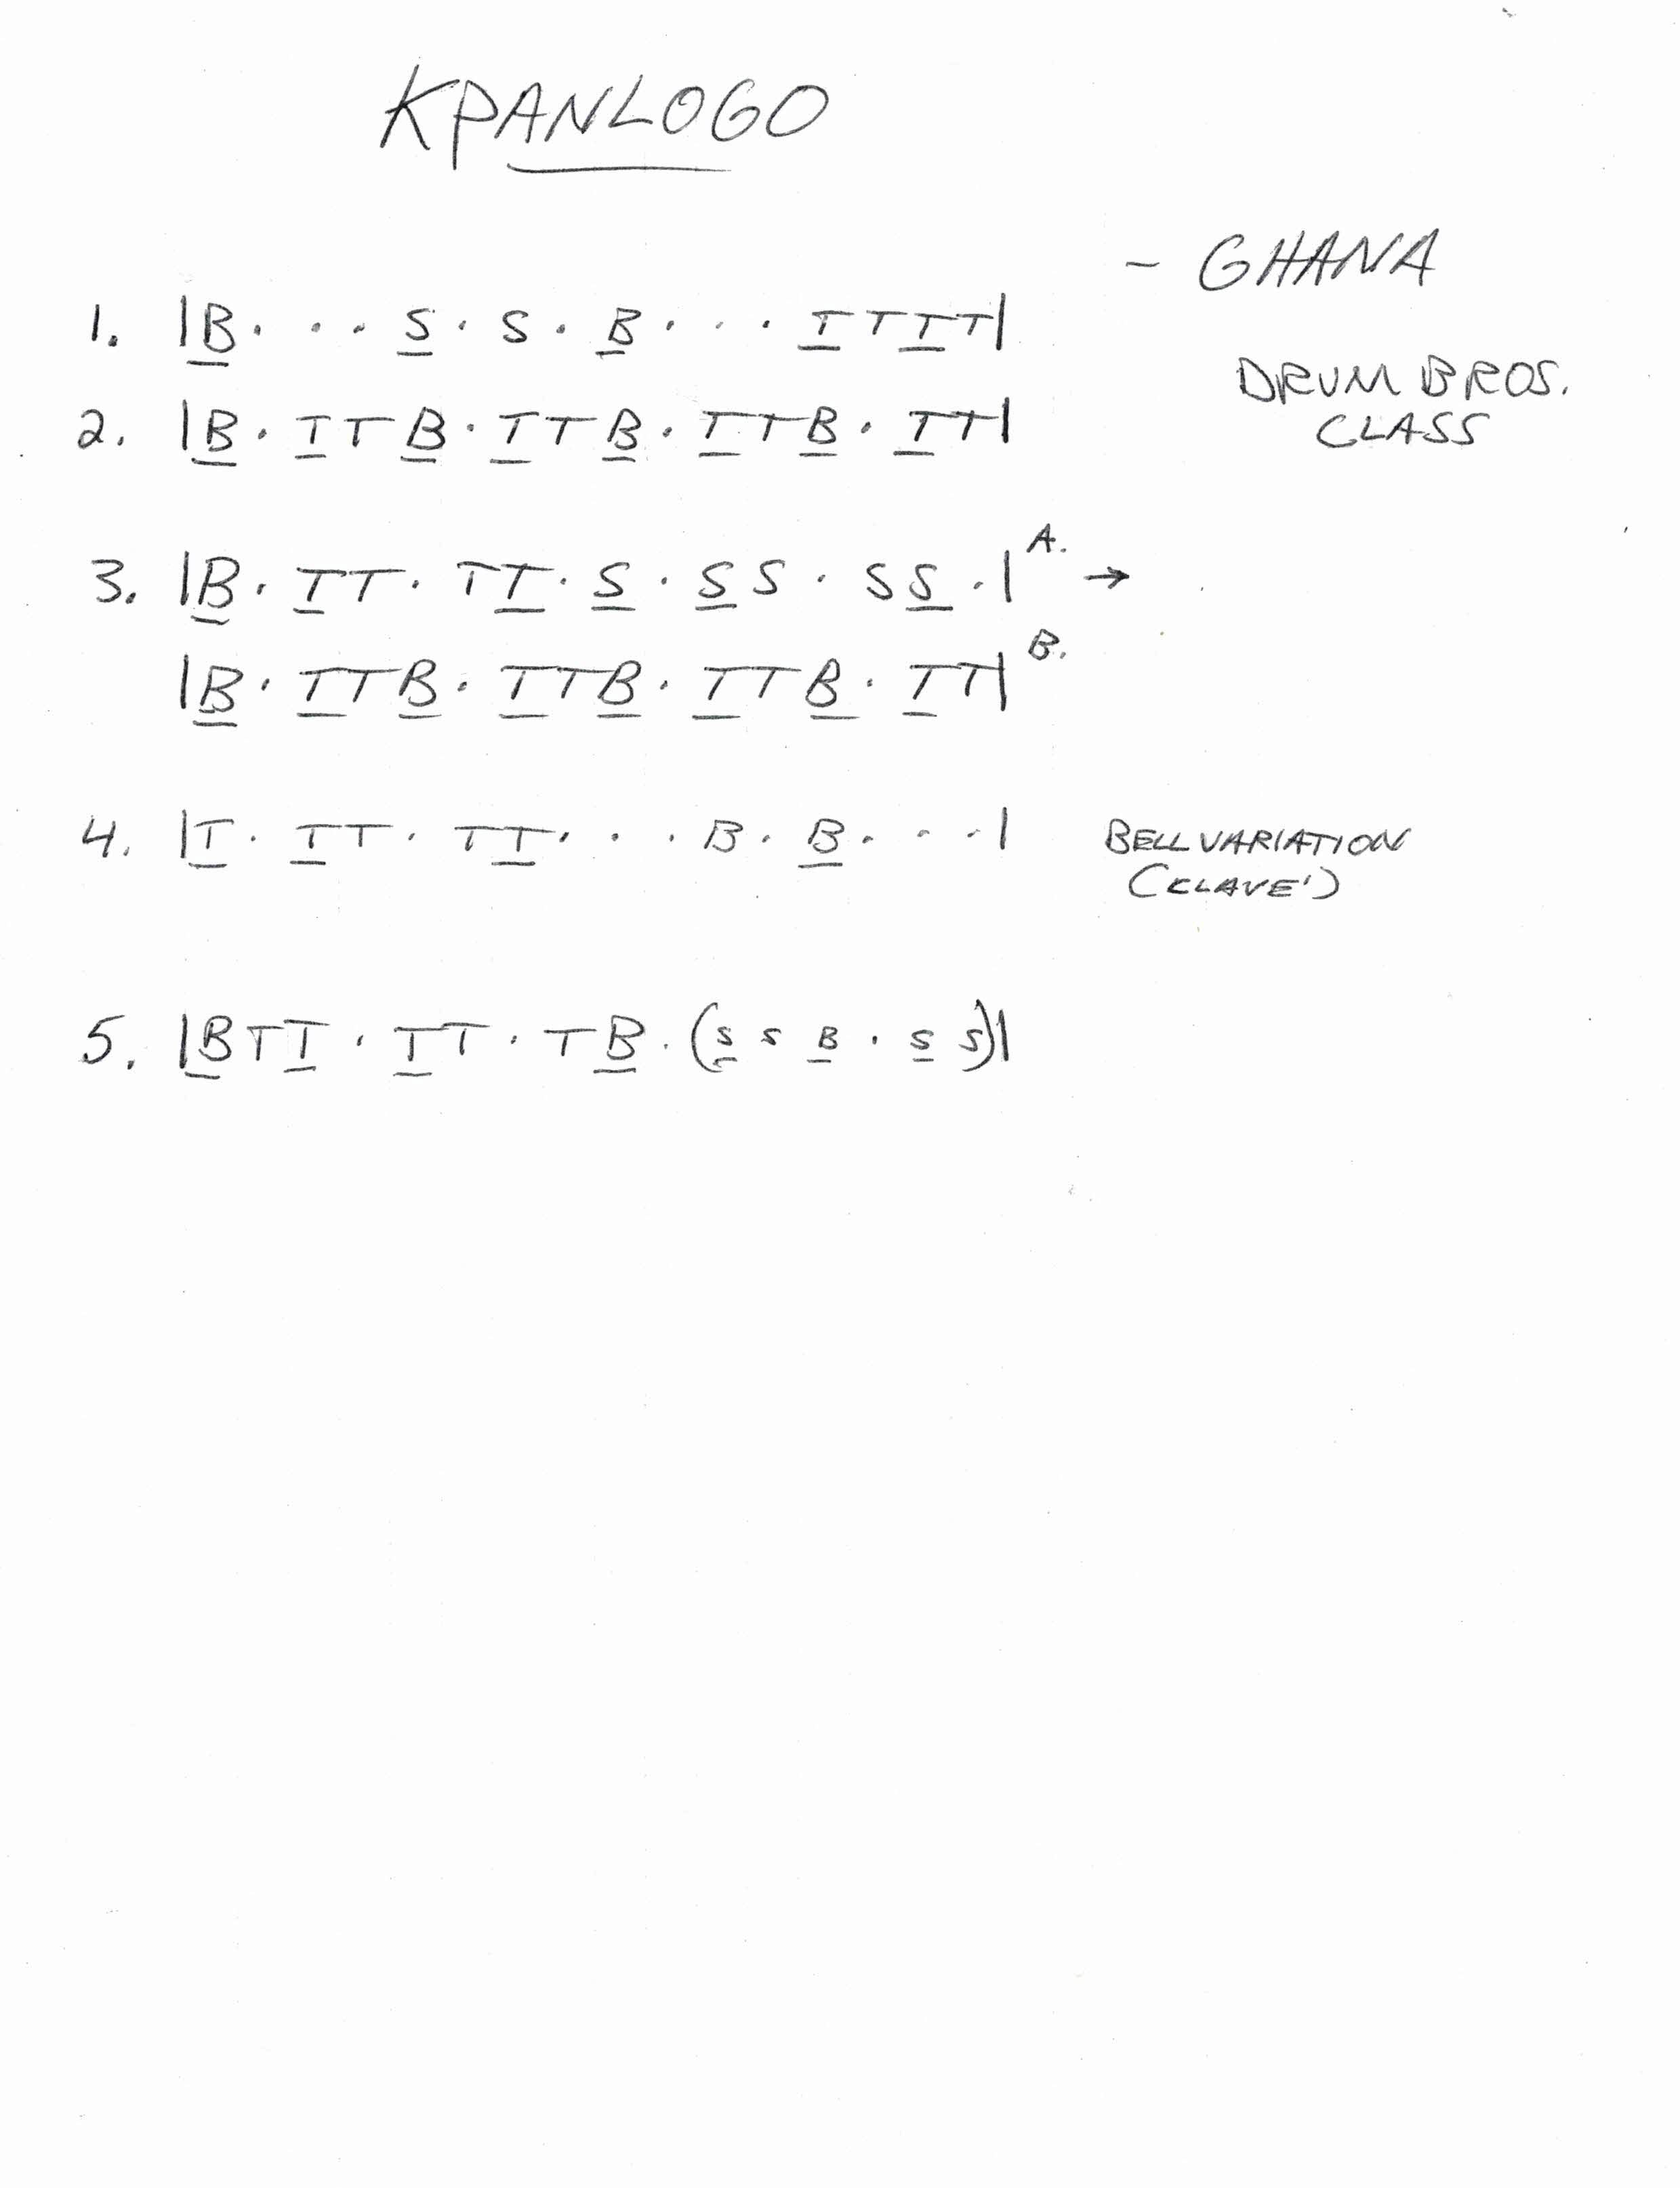 KPANLOGO
- GHANA
1. |B · · · S · S · B · · · T T T T|
DRUM BROS.
CLASS
2. |B · T T B · T T B · T T B · T T|
3. |B · T T · T T · S · S S · S S · | A. →
|B · T T B · T T B · T T B · T T| B.
4. |T · T T · T T · · · B · B · · · |
BELL VARIATION
(CLAVE')
5. |B T T · T T · T B · (S S B · S S)|